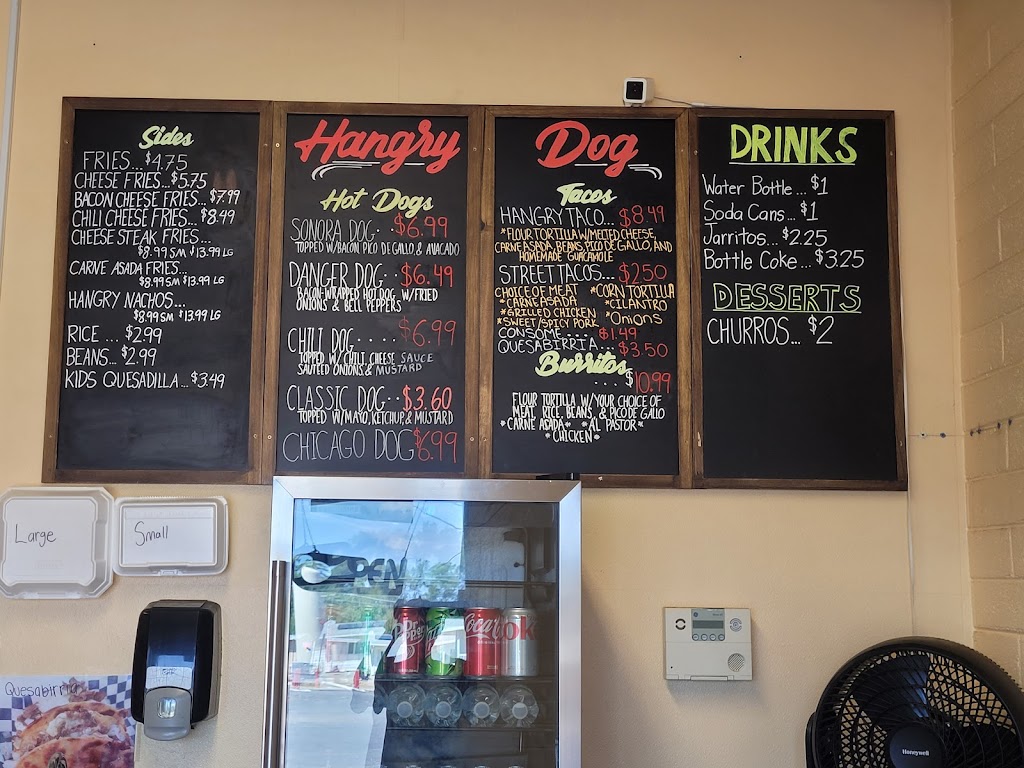 Sides
FRIES...$4.75
CHEESE FRIES...$5.75
BACON CHEESE FRIES...$7.99
CHILI CHEESE FRIES...$8.49
CHEESE STEAK FRIES...
$8.99 SM $13.99 LG
CARNE ASADA FRIES...
$8.99 SM $13.99 LG
HANGRY NACHOS...
$8.99 SM $13.99 LG
RICE ... $2.99
BEANS... $2.99
KIDS QUESADILLA...$3.49
Hangry
Hot Dogs
SONORA DOG...$6.99
TOPPED W/BACON, PICO DE GALLO, & AVACADO
DANGER DOG...$6.49
BACON-WRAPPED HOT DOG, W/FRIED
ONIONS & BELL PEPPERS
CHILI DOG.....$6.99
TOPPED W/ CHILI, CHEESE SAUCE
SAUTEED ONIONS & MUSTARD
CLASSIC DOG..$3.60
TOPPED W/MAYO, KETCHUP, & MUSTARD
CHICAGO DOG $6.99
Dog
Tacos
HANGRY TACO... $8.49
*FLOUR TORTILLA W/MELTED CHEESE,
CARNE ASADA, BEANS, PICO DE GALLO, AND
HOMEMADE GUACAMOLE
STREET TACOS... $2.50
CHOICE OF MEAT *CORN TORTILLA
*CARNE ASADA *CILANTRO
*GRILLED CHICKEN *Onions
*SWEET/SPICY PORK
CONSOME.... $1.49
QUESABIRRIA...$3.50
Burritos
....$10.99
FLOUR TORTILLA W/YOUR CHOICE OF
MEAT, RICE, BEANS, & PICO DE GALLO
*CARNE ASADA* *AL PASTOR*
*CHICKEN*
DRINKS
Water Bottle... $1
Soda Cans... $1
Jarritos... $2.25
Bottle Coke... $3.25
DESSERTS
CHURROS... $2
Large
Small
OPEN
Dr Pepper
Coca
oke
Quesabirria
Honeywell